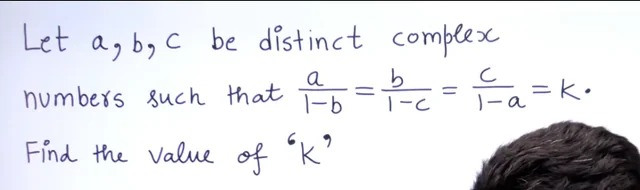 Let a, b, c be distinct complex
numbers such that a/(1-b) = b/(1-c) = c/(1-a) = K.
Find the value of 'K'